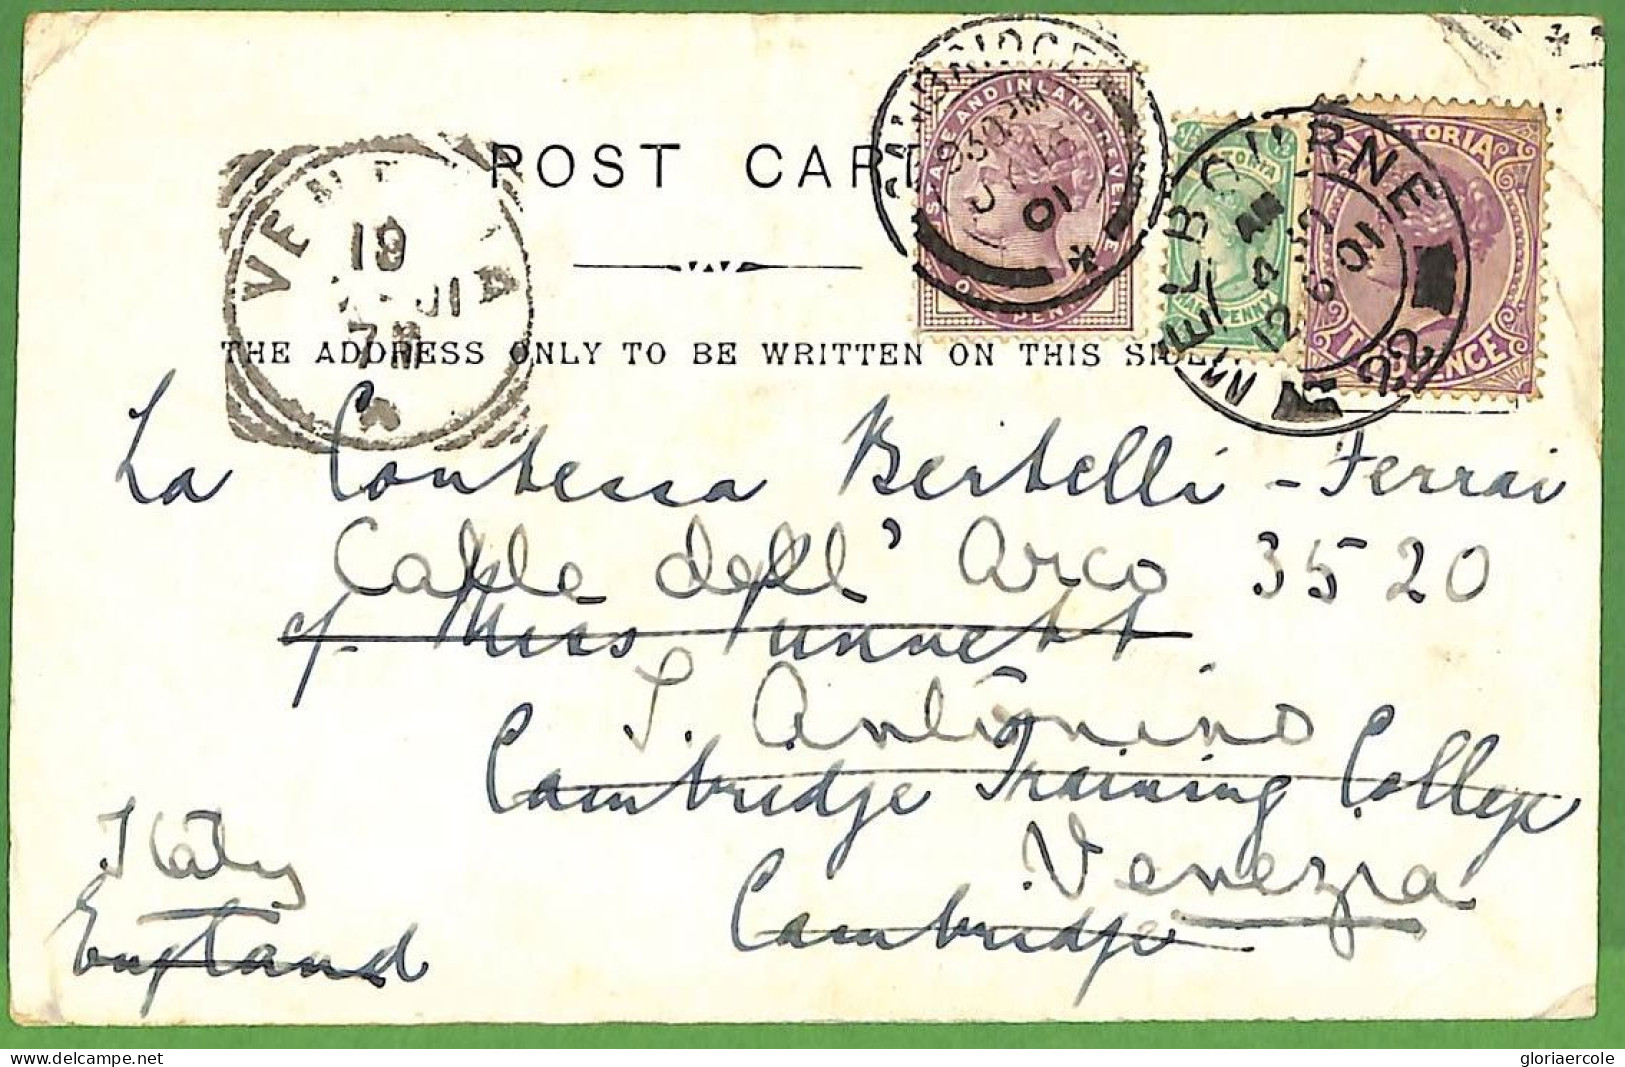 POST CARD
THE ADDRESS ONLY TO BE WRITTEN ON THIS SIDE.
CAMBRIDGE
930PM
JY 16
01
POSTAGE AND INLAND REVENUE
ONE PENNY
VICTORIA
HALF PENNY
MELBOURNE
4 AM
12 6 01
22
VICTORIA
TWO PENCE
VENEZIA
19
01
7 M
La Contessa Bertelli-Ferrai
Calle dell' Arco 3520
c/. Miss Punnett
S. Antonino
Cambridge Training College
Venezia
Cambridge
Italy
England
gloriaercole